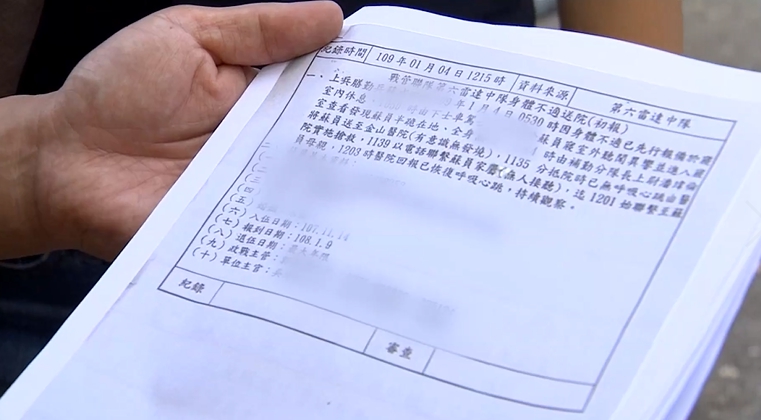 紀錄時間 109年01月04日1215時 資料來源 第六雷達中隊
戰管聯隊第六雷達中隊身體不適送院(初報)
一、上兵膳勤 年1月4日0530時因身體不適已先行報備於寢
室內休息 時由下士車駕 蘇員寢室外聽聞異響並進入寢
室查看發現蘇員半跪在地,全身 時由補勤分隊長上尉潘瑋倫
將蘇員送至金山醫院(有意識無發燒),1135分抵院時已無呼吸心跳由醫
院實施搶救,1139以電話聯繫蘇員家屬(無人接聽),迄1201始聯繫至蘇
員母親,1203時醫院回報已恢復呼吸心跳,持續觀察。
(四)
(五)
(六)入伍日期:107.11.14
(七)報到日期:108.1.9
(八)退伍日期:
(九)政戰主管:
(十)單位主官:
紀錄 審查